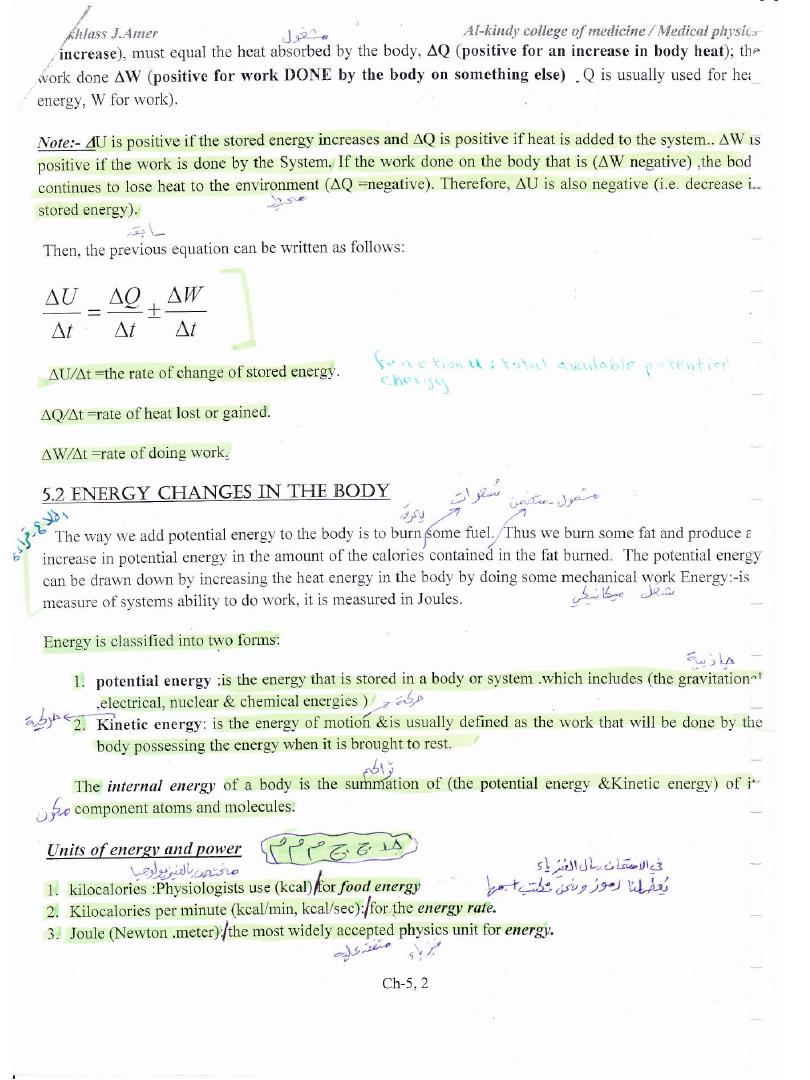 khlass J.Amer Al-kindy college of medicine / Medical physics
increase), must equal the heat absorbed by the body, ΔQ (positive for an increase in body heat); the
work done ΔW (positive for work DONE by the body on something else) . Q is usually used for
energy, W for work).
Note:- ΔU is positive if the stored energy increases and ΔQ is positive if heat is added to the system.. ΔW is
positive if the work is done by the System. If the work done on the body that is (ΔW negative) ,the bod
continues to lose heat to the environment (ΔQ =negative). Therefore, ΔU is also negative (i.e. decrease i
stored energy).
محيط
سابقة
Then, the previous equation can be written as follows:
ΔU/Δt = ΔQ/Δt ± ΔW/Δt
ΔU/Δt =the rate of change of stored energy.
function U : total available potential
energy
ΔQ/Δt =rate of heat lost or gained.
ΔW/Δt =rate of doing work.
5.2 ENERGY CHANGES IN THE BODY
سعرات
The way we add potential energy to the body is to burn some fuel. Thus we burn some fat and produce a
increase in potential energy in the amount of the calories contained in the fat burned. The potential energy
can be drawn down by increasing the heat energy in the body by doing some mechanical work Energy:-is
measure of systems ability to do work, it is measured in Joules.
شغل ميكانيكي
Energy is classified into two forms:
جاذبية
1. potential energy :is the energy that is stored in a body or system .which includes (the gravitational
,electrical, nuclear & chemical energies )
حركة
حركية
2. Kinetic energy: is the energy of motion &is usually defined as the work that will be done by the
body possessing the energy when it is brought to rest.
The internal energy of a body is the summation of (the potential energy &Kinetic energy) of i
component atoms and molecules.
مكون
Units of energy and power
مختص بالفيزيولوجيا
1. kilocalories :Physiologists use (kcal) for food energy
2. Kilocalories per minute (kcal/min, kcal/sec): for the energy rate.
3. Joule (Newton .meter): the most widely accepted physics unit for energy.
فيزياء
متفقة عليه
Ch-5, 2